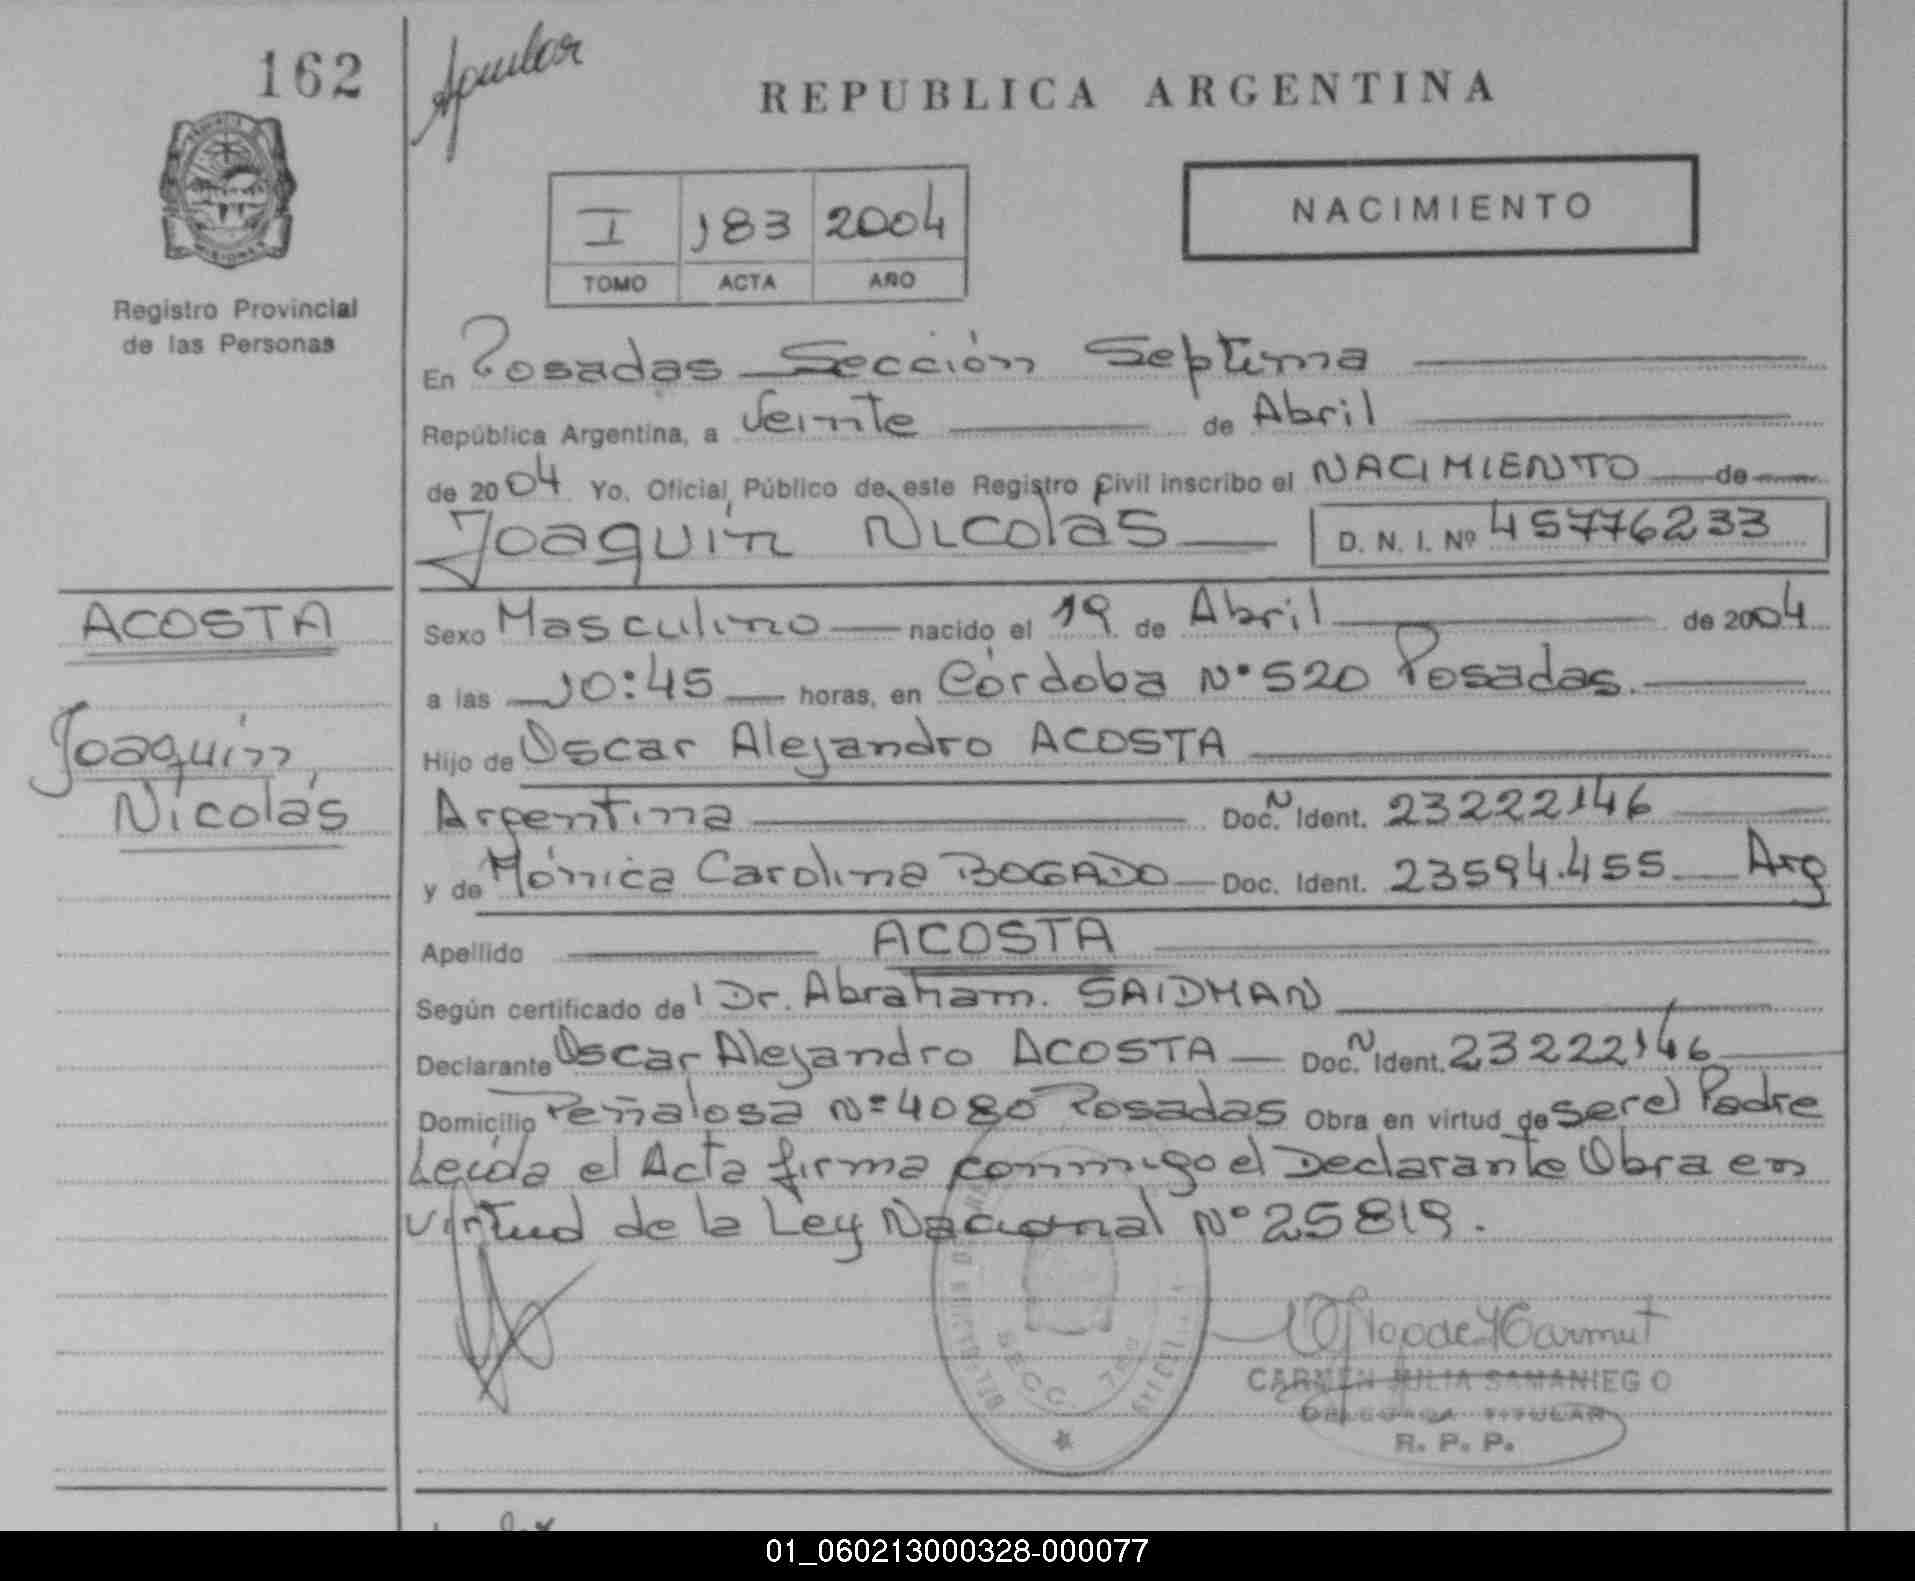 162
Aguilar
REPUBLICA ARGENTINA
I 183 2004
TOMO ACTA AÑO
NACIMIENTO
Registro Provincial
de las Personas
En Posadas Sección Septima
República Argentina, a Veinte de Abril
de 2004 Yo. Oficial Público de este Registro Civil inscribo el NACIMIENTO de
Joaquín Nicolás D. N. I. Nº 45776233
ACOSTA
Joaquín
Nicolás
Sexo Masculino nacido el 19 de Abril de 2004
a las 10:45 horas, en Córdoba Nº 520 Posadas.
Hijo de Oscar Alejandro ACOSTA
Argentina Doc. N Ident. 23222146
y de Mónica Carolina BOGADO Doc. Ident. 23594.455 Arg
Apellido ACOSTA
Según certificado del Dr. Abraham. SAIDMAN
Declarante Oscar Alejandro ACOSTA Doc. N Ident. 23222146
Domicilio Peñalosa Nº 4080 Posadas Obra en virtud de ser el Padre
Leída el Acta firma conmigo el Declarante Obra en
virtud de la Ley Nacional Nº 25819.
SECC. 7
CARMEN JULIA SAMANIEGO
DELEGADA TITULAR
R. P. P.
01_060213000328-000077